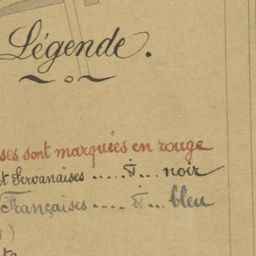 Légende.
ses sont marquées en rouge
t Servanaises ..... ṫ ... noir
Françaises .... ṫ ... bleu